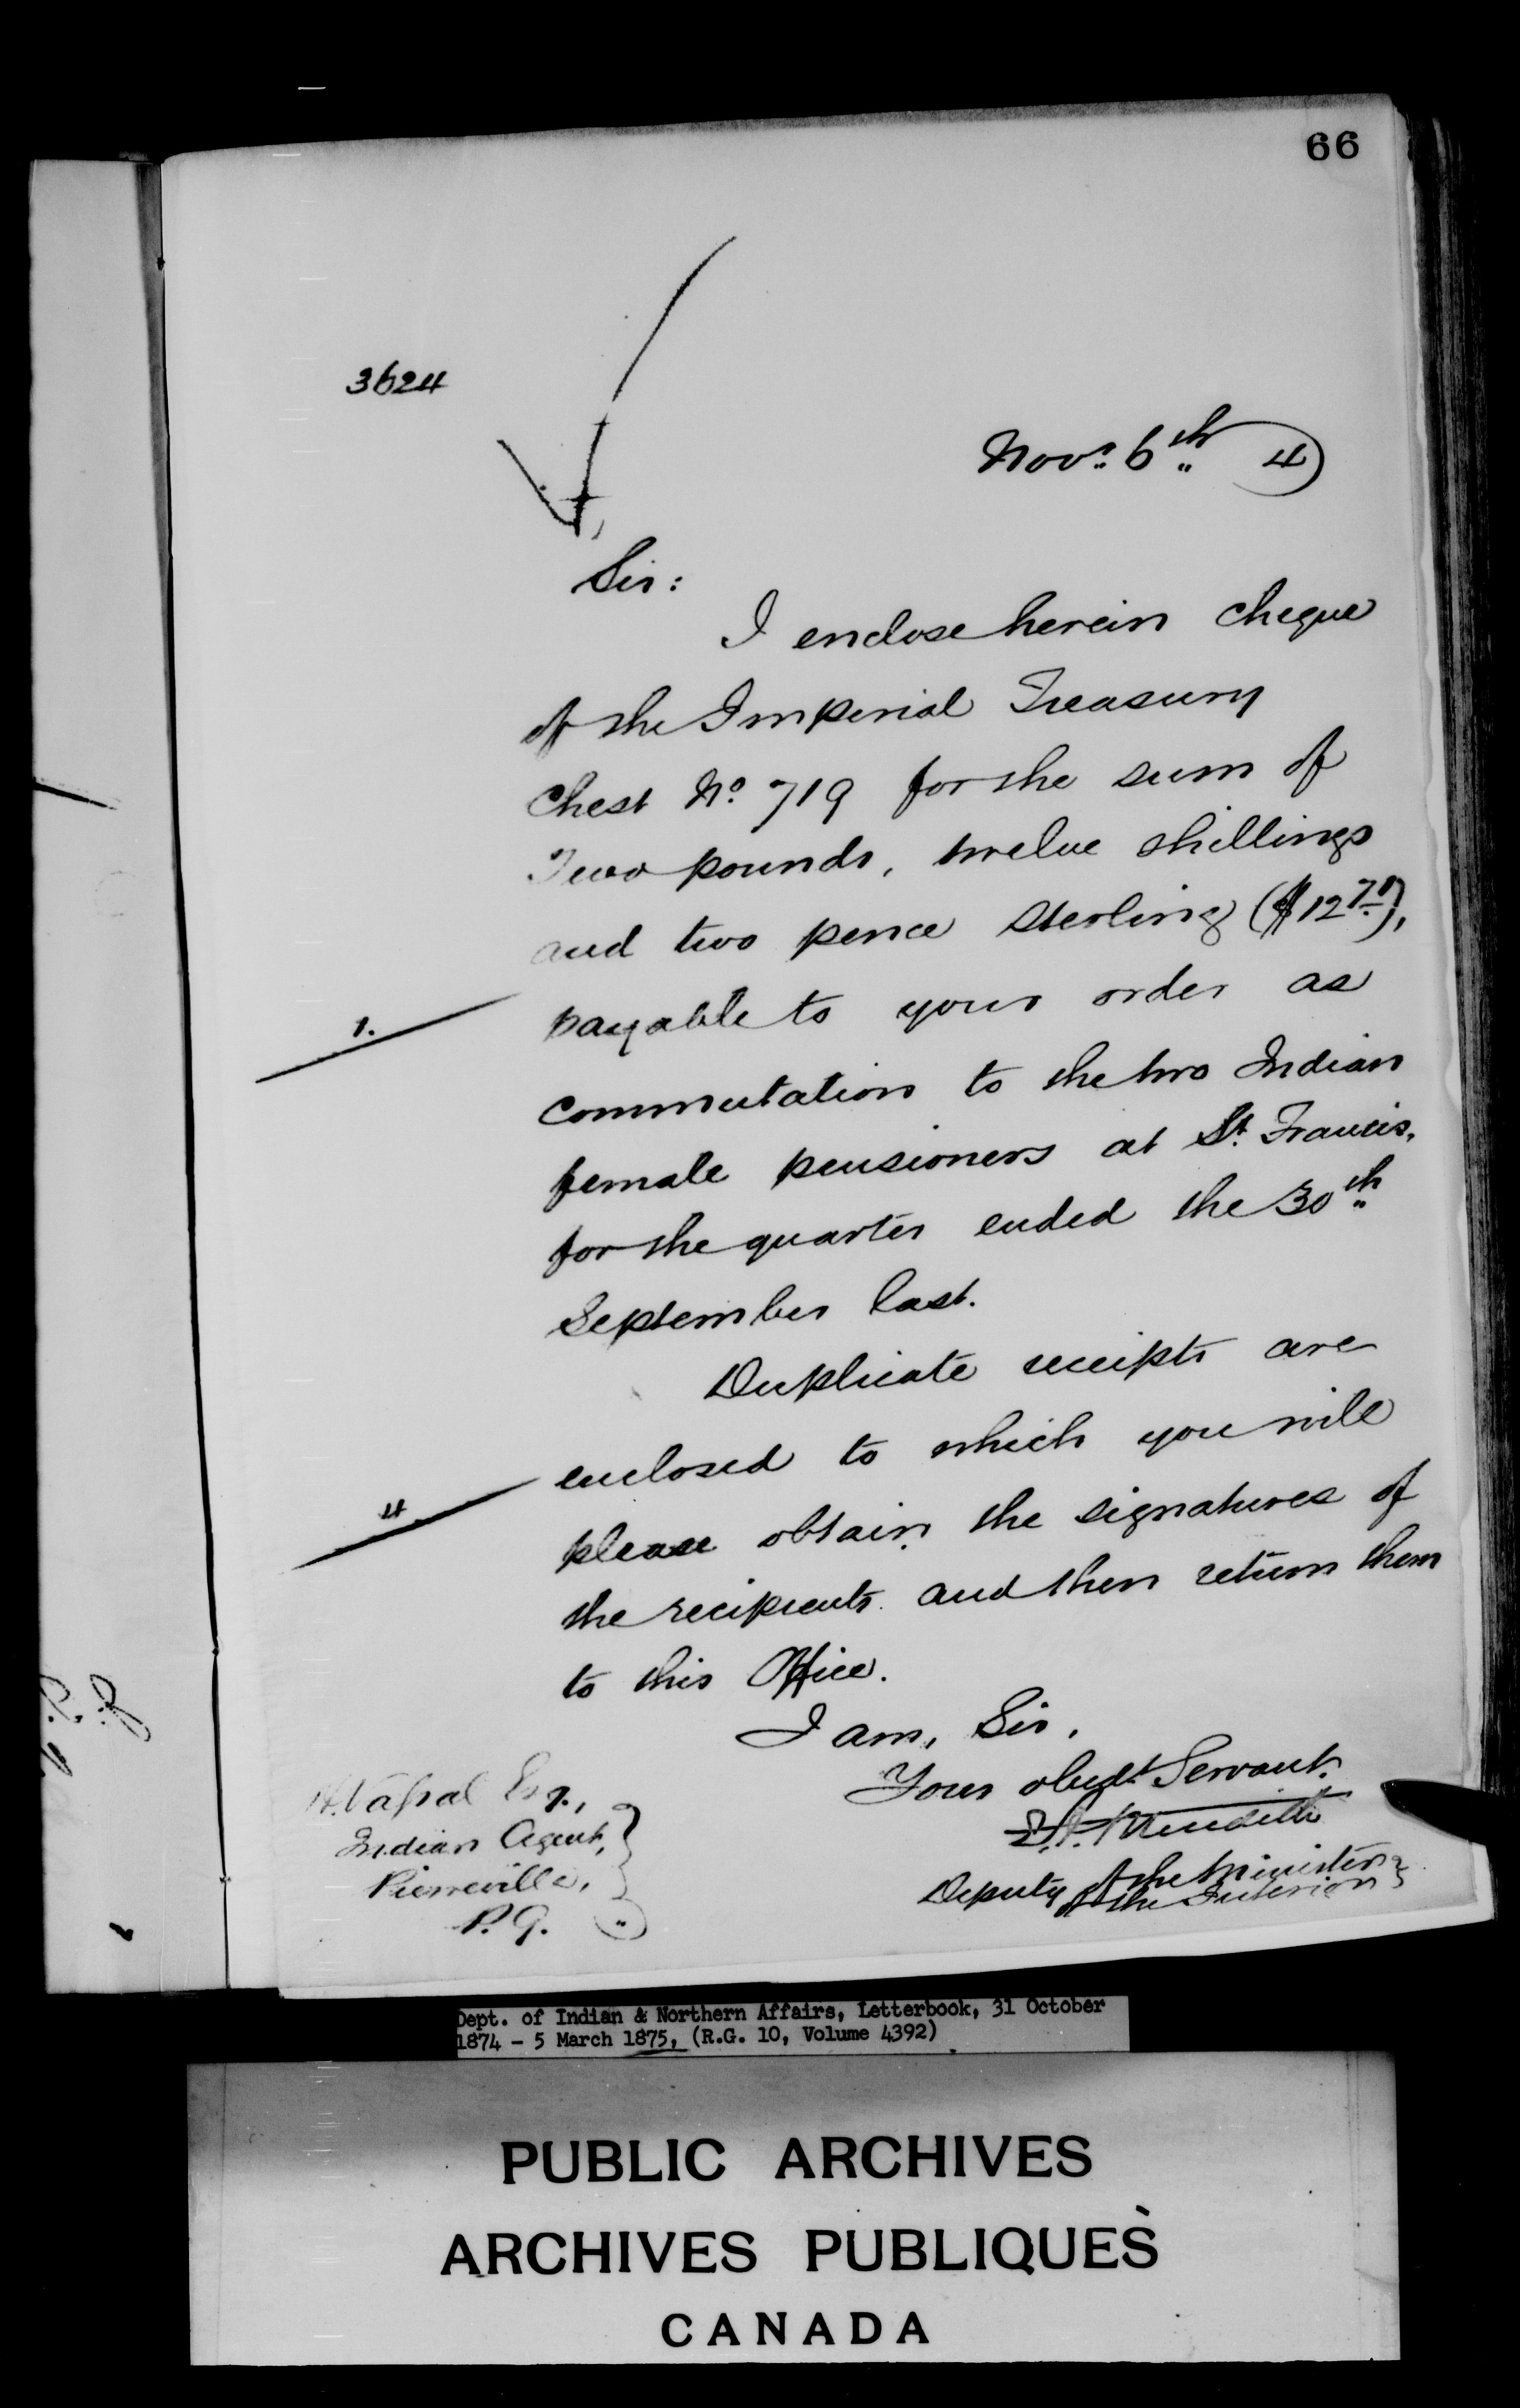 66
3624
Novr. 6th 4)
Sir:
I enclose herein cheque
of the Imperial Treasury
Chest No. 719 for the sum of
Two pounds, twelve shillings
and two pence Sterling ($12 71),
1.
payable to your order as
commutation to the two Indian
female pensioners at St. Francis,
for the quarter ended the 30th
September last.
Duplicate receipts are
enclosed to which you will
4
please obtain the signatures of
the recipients and then return them
to this Office.
I am, Sir,
Your obedt Servant.
Meredith
Deputy of the Minister
of the Interior
H. Vassal Esq.,
Indian Agent,
Pierreville,
P.Q.
Dept. of Indian & Northern Affairs, Letterbook, 31 October
1874 - 5 March 1875, (R.G. 10, Volume 4392)
PUBLIC ARCHIVES
ARCHIVES PUBLIQUES
CANADA